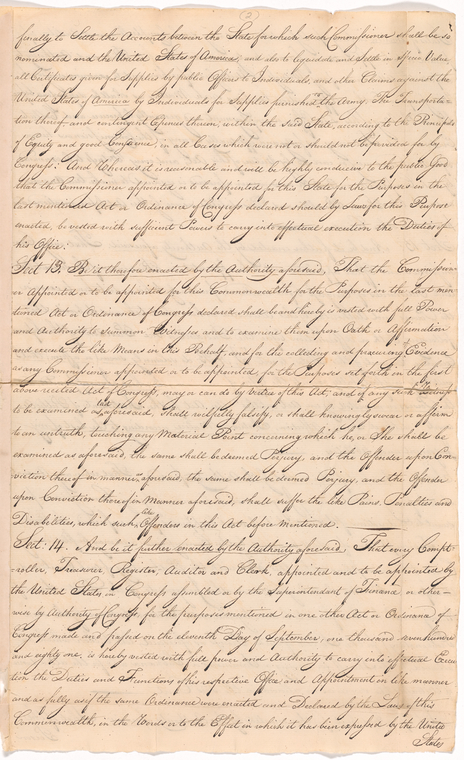 finally to Settle the Accounts between the State for which such Commissioner shall be so
nominated and the United States of America, and also to liquidate and Settle in specie Value
all Certificates given for Supplies by public Officers to Individuals, and other Claims against the
United States of America by Individuals for Supplies furnished the Army, The Transporta-
tion thereof and contingent Expenses thereon, within the said State, according to the Principles
of Equity and good Conscience, in all Cases which were not or should not be provided for by
Congress: And Whereas it is reasonable and will be highly conducive to the public Good
that the Commissioner appointed or to be appointed for this State for the Purposes in the
last mentioned Act or Ordinance of Congress declared should by Law for this Purpose
enacted, be vested with sufficient Powers to carry into effectual execution the Duties of
his Office:
Sect: 13: Be it therefore enacted by the Authority aforesaid, That the Commission-
er appointed or to be appointed for this Commonwealth for the Purposes in the last men-
tioned Act or Ordinance of Congress declared shall be and hereby is vested with full Power
and Authority to Summon Witnesses and to examine them upon Oath or Affirmation
and execute the like Means in this Behalf, and for the collecting and procuring Evidence
as any Commissioner appointed or to be appointed for the Purposes set forth in the first
above recited Act of Congress, may or can do by Virtue of this Act; and if any such Witness
to be examined as aforesaid, shall wilfully falsify, or shall knowingly swear or affirm
to an untruth, touching any Material Point concerning which he, or She shall be
examined as aforesaid, the same shall be deemed Perjury, and the Offender upon Con-
viction thereof in manner aforesaid, the same shall be deemed Perjury, and the Offender
upon Conviction thereof in Manner aforesaid, shall suffer the like Pains, Penalties and
Disabilities, which such like Offenders in this Act before Mentioned.
Sect: 14. And be it further enacted by the Authority aforesaid, That every Compt-
roller, Treasurer, Register, Auditor and Clerk, appointed and to be appointed by
the United States in Congress assembled or by the Superintendant of Finance or other-
wise by Authority of Congress, for the purposes mentioned in one other Act or Ordinance of
Congress made and passed on the eleventh Day of September, one thousand seven hundred
and eighty one, is hereby vested with full power and Authority to carry into effectual Execu-
tion the Duties and Functions of his respective Office and Appointment in like manner
and as fully as if the same Ordinance were enacted and Declared by the Laws of this
Commonwealth, in the Words or to the Effect in which it has been expressed by the United
States